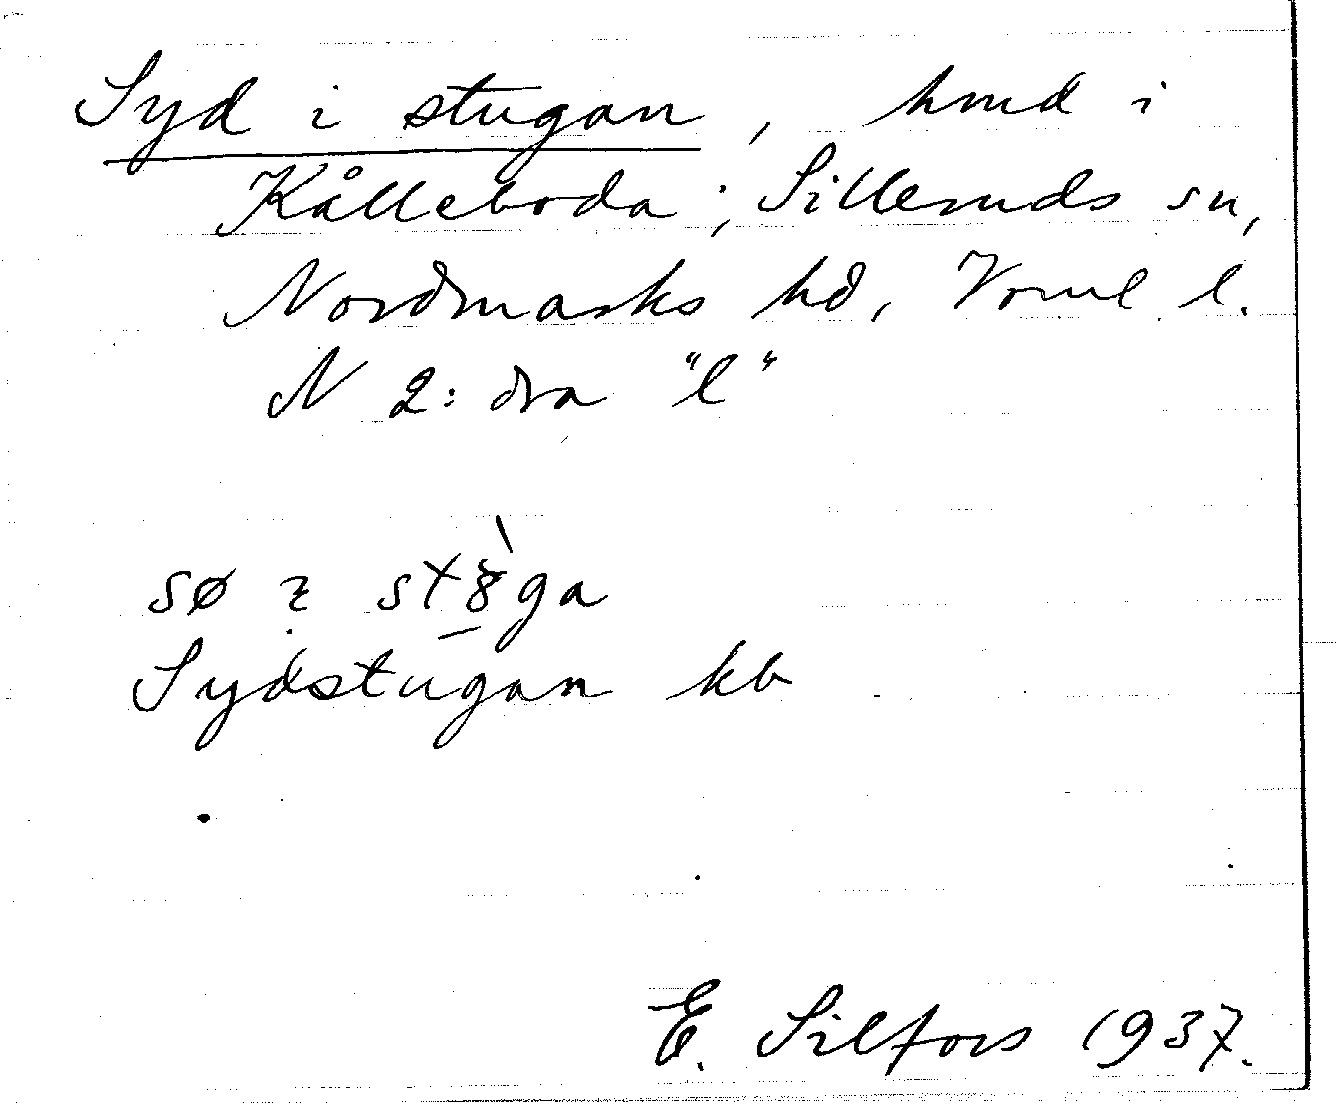 Syd i stugan, hmd i
Kålleboda; Silleruds sn,
Nordmarks hd, Vrml l.
N 2:dra "l"
Sydstugan kb
E. Silfors 1937.